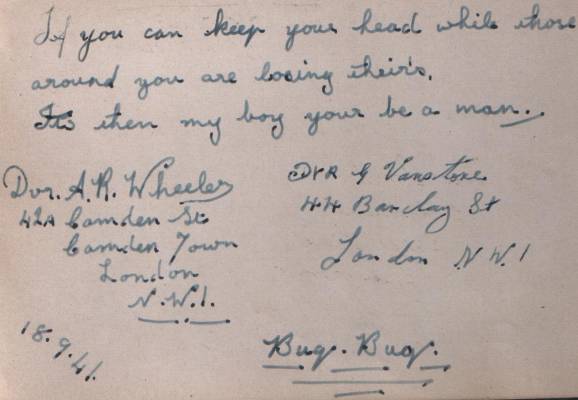 If you can keep your head while those
around you are losing their's.
It's then my boy your be a man.
Dvr. A. R. Wheeler
42A Camden St
Camden Town
London
N.W.1.
DVR G Vanstone
44 Barclay St
London N.W.1
18.9.41.
Bug. Bug.